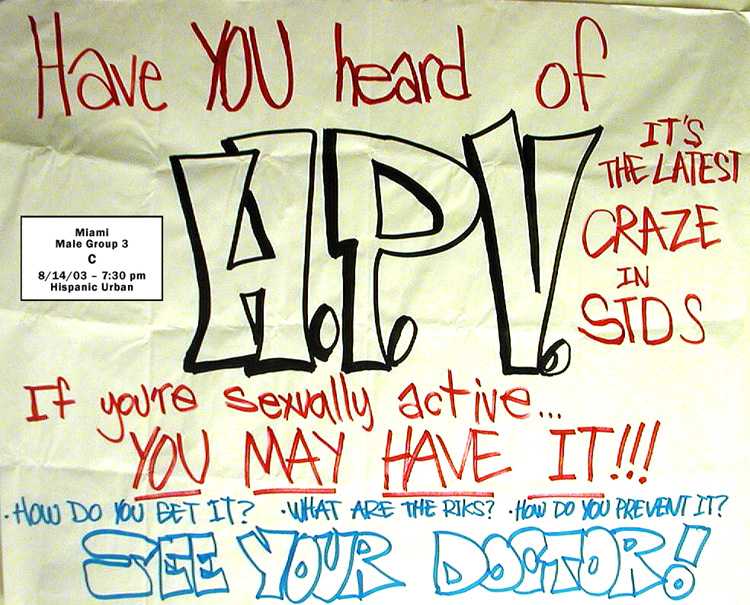 Have YOU heard of
H.P.V.
IT'S
THE LATEST
CRAZE
IN
STDS
Miami
Male Group 3
C
8/14/03 – 7:30 pm
Hispanic Urban
If you're sexually active...
YOU MAY HAVE IT!!!
·HOW DO YOU GET IT? ·WHAT ARE THE RIKS? ·HOW DO YOU PREVENT IT?
SEE YOUR DOCTOR!